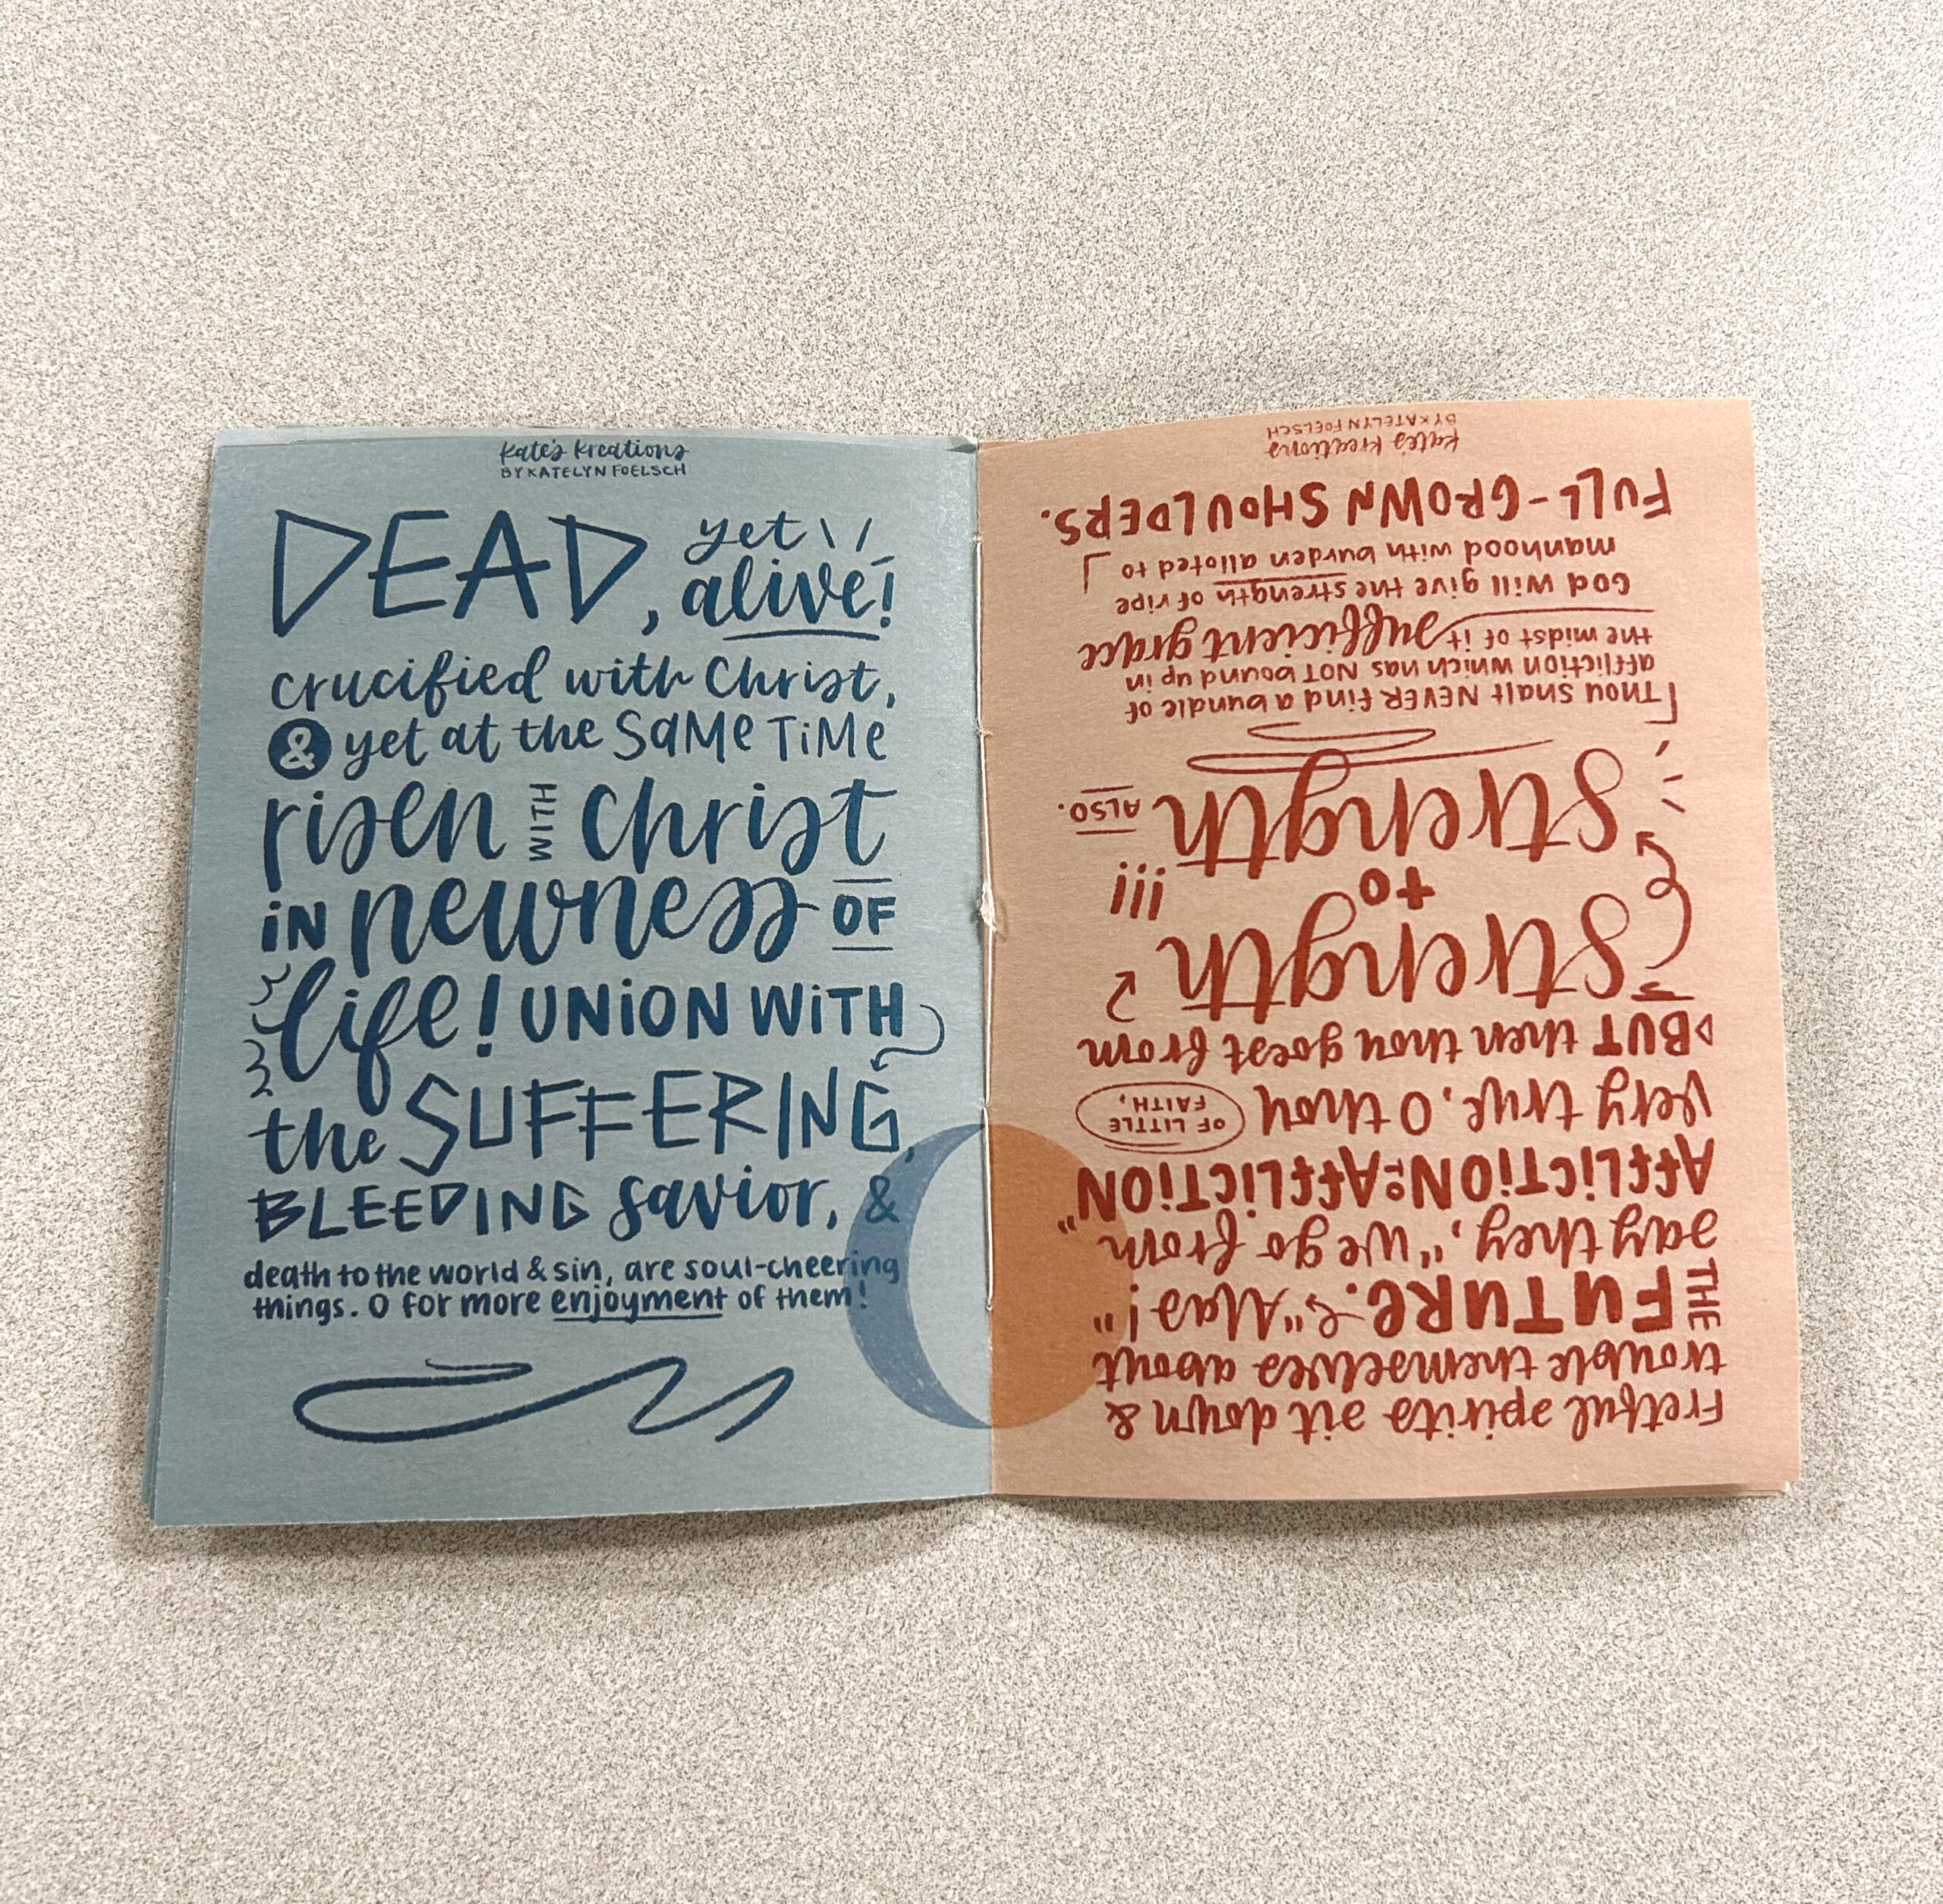 Kate's Kreations
BY KATELYN FOELSCH
DEAD, yet
alive!
crucified with Christ,
& yet at the SaMe TiMe
risen WITH Christ
iN newness OF
life! UNiON WiTH
the SUFFERING,
BLEEDING savior, &
death to the world & sin, are soul-cheering
things. O for more enjoyment of them!
Fretful spirits sit down &
trouble themselves about
THE FUTURE. "Alas!"
say they, "we go from
AffLiCTiON TO AffLiCTiON"
Very true, O thou OF LITTLE FAITH,
BUT then thou goest from
Strength
to
Strength ALSO.
Thou shalt NEVER find a bundle of
affliction which has NOT bound up in
the midst of it sufficient grace
God will give the strength of ripe
manhood with burden alloted to
FULL-GROWN SHOULDERS.
Kate's Kreations
BY KATELYN FOELSCH